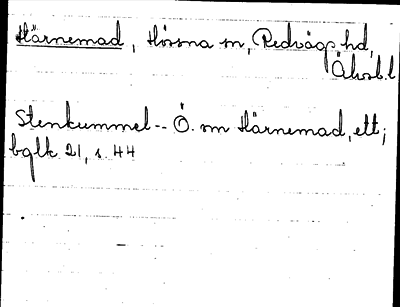 Härnemad, Hössna sn, Redvägs hd,
Älvsb. l
Stenkummel -- Ö. om Härnemad, ett;
bglk 21, s. 44